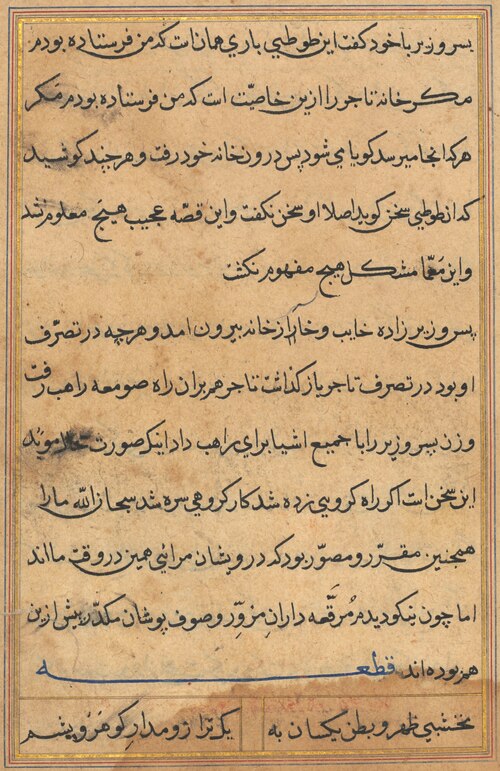 پسر وزیر با خود کفت این طوطیی باری همان است که من فرستاده بودم
مکر خانهٔ تاجر را از این خاصیّت است که من فرستاده بودم مکر
هر که انجا میرسد کویا می شود پس درون خانه خود رفت و هر چند کوشید
که از طوطی سخن کوید اصلا او سخن نکفت و این قصّه عجیب هیچ معلوم نشد
و این معمّا مشکل هیچ مفهوم نکشت
پس وزیر زاده خایب و خاسر از خانه بیرون امد و هر چه در تصرّف
او بود در تصرف تاجر باز کذاشت تاجر هم بران راه صومعه راهب رفت
و زن پسر وزیر را با جمیع اشیا برای راهب داد اینک صورت حال
این سخن است اکر راه کرو بی زده شد کار کروهی سره شد سبحان الله ما را
همچنین مقرّر و مصوّر بود که درویشان مرائی همین در وقت ما اند
اما چون نیکو دیدم مُرقَّعه داران مزوِّر و صوف پوشان مکدّر پیش ازین
هم بوده اند قطعه
نخشبی ظهر و بطن یکسان به
یک ترا زو مدار کو هر و پشم